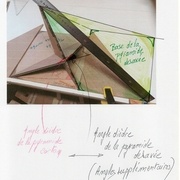 Base de la
pyramide
désaxée
Angle dièdre
de la pyramide
Angle dièdre
de la pyramide
désaxée
(Angles supplémentaires)